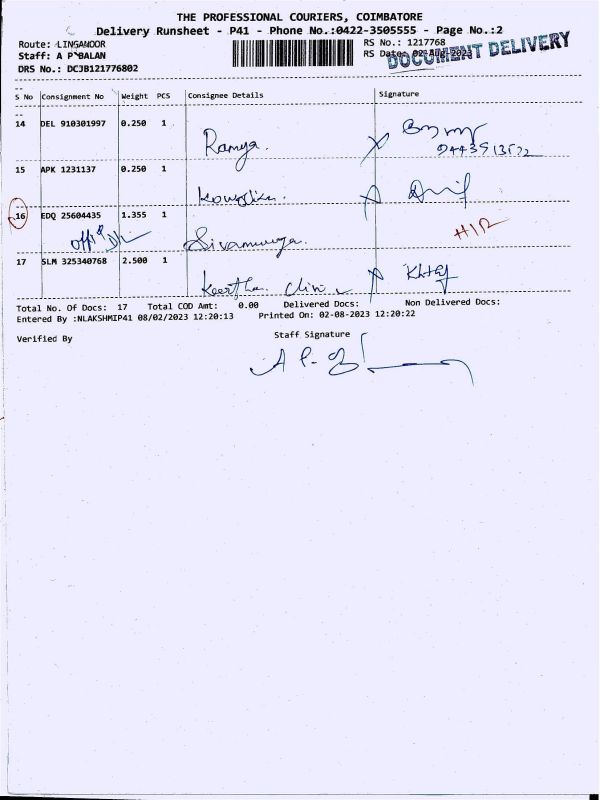 THE PROFESSIONAL COURIERS, COIMBATORE
Delivery Runsheet - P41 - Phone No.:0422-3505555 - Page No.:2
Route: LINGANOOR
RS No.: 1217768
Staff: A P BALAN
RS Date: 02-Aug-2023
DOCUMENT DELIVERY
DRS No.: DCJB121776802
S No Consignment No Weight PCS Consignee Details Signature
14 DEL 910301997 0.250 1
Ramya.
15 APK 1231137 0.250 1
16 EDQ 25604435 1.355 1
17 SLM 325340768 2.500 1
Total No. Of Docs: 17 Total COD Amt: 0.00 Delivered Docs: Non Delivered Docs:
Entered By :NLAKSHMIP41 08/02/2023 12:20:13 Printed On: 02-08-2023 12:20:22
Verified By
Staff Signature